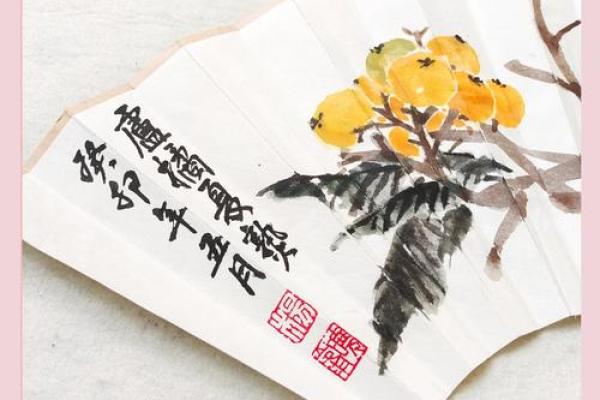 盧橘夏熟
癸卯年五月